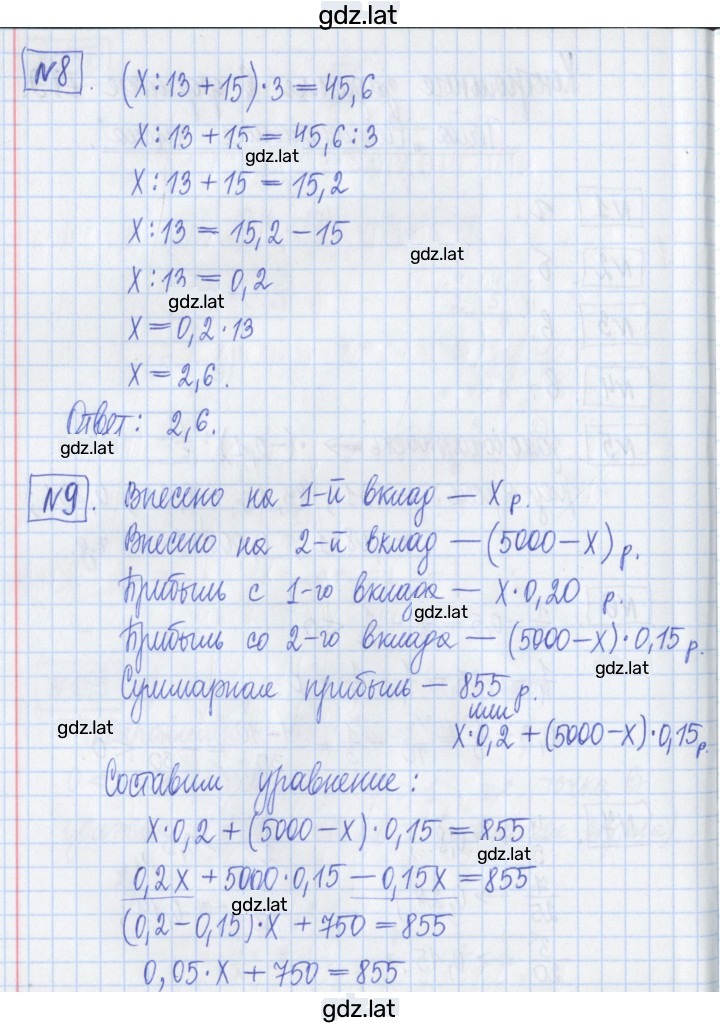 gdz.lat
№8. (x:13+15)·3=45,6
x:13+15=45,6:3
gdz.lat
x:13+15=15,2
x:13=15,2-15
gdz.lat
x:13=0,2
gdz.lat
x=0,2·13
x=2,6.
Ответ: 2,6.
gdz.lat
№9. Внесено на 1-й вклад — x р.
Внесено на 2-й вклад — (5000-x) р.
Прибыль с 1-го вклада — x·0,20 р.
gdz.lat
Прибыль со 2-го вклада — (5000-x)·0,15 р.
gdz.lat
Суммарная прибыль — 855 р.
или
gdz.lat
x·0,2+(5000-x)·0,15 р.
Составим уравнение:
x·0,2+(5000-x)·0,15=855
gdz.lat
0,2x+5000·0,15-0,15x=855
gdz.lat
(0,2-0,15)·x+750=855
0,05·x+750=855
gdz.lat